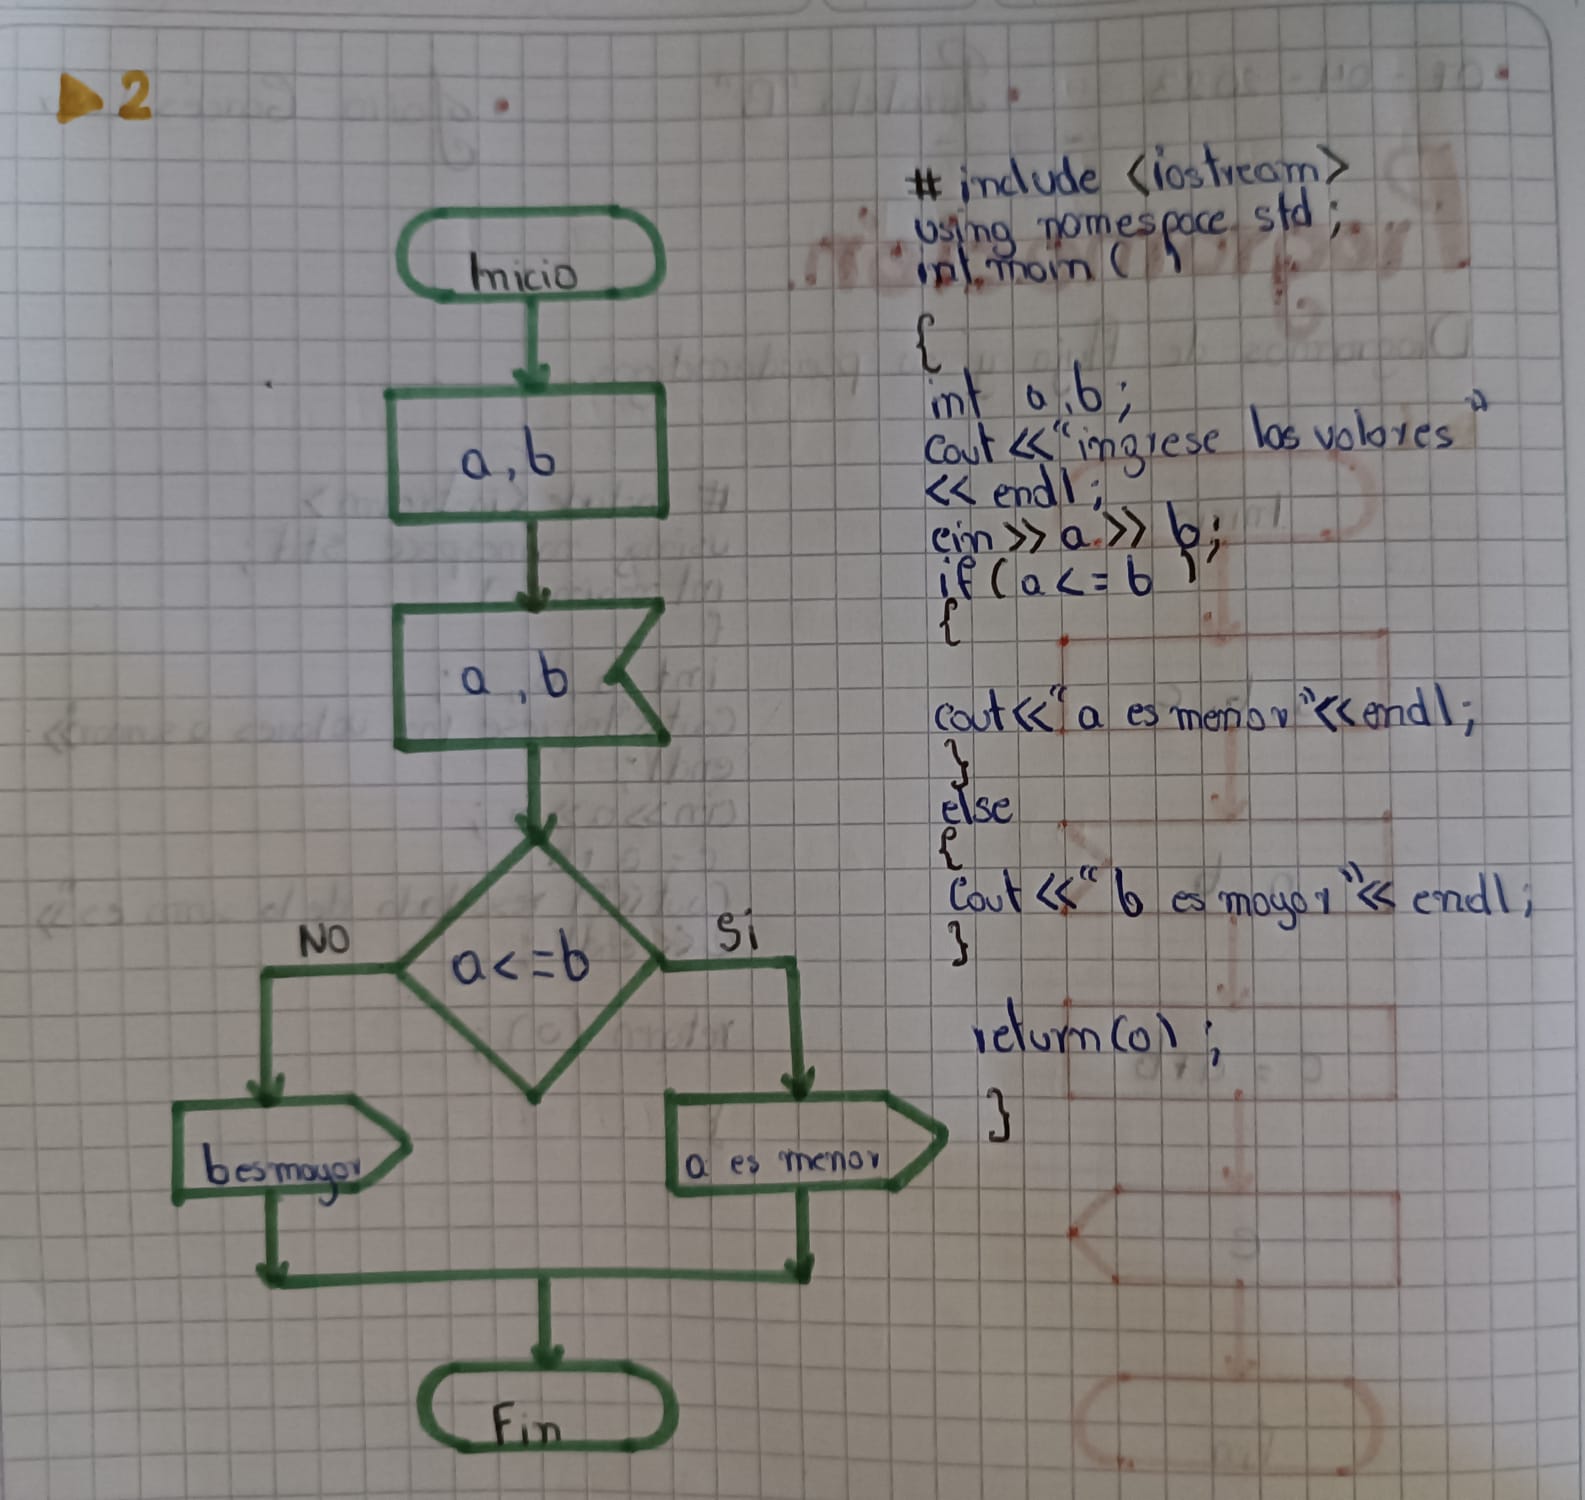 2
Inicio
a, b
a, b
a<=b
NO
Si
b es mayor
a es menor
Fin
# include <iostream>
using namespace std;
int main ( )
{
int a, b;
cout << "ingrese los valores"
<< endl;
cin >> a >> b;
if ( a <= b )
{
cout << "a es menor" << endl;
}
else
{
cout << "b es mayor" << endl;
}
return (0) ;
}